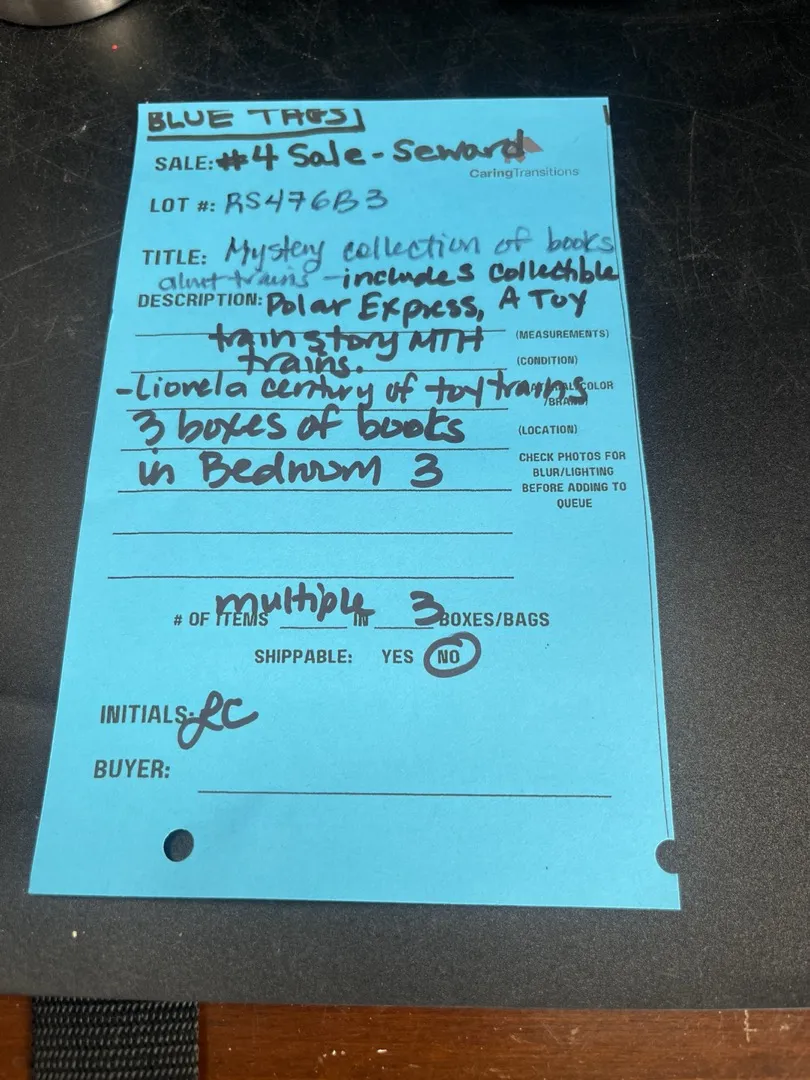 BLUE TAGS
SALE: #4 Sale - Seward
CaringTransitions
LOT #: RS476B3
TITLE: Mystery collection of books
about trains - includes collectible
DESCRIPTION: Polar Express, A Toy
train story MTH
(MEASUREMENTS)
trains.
(CONDITION)
- Lionel a century of toy trains
COLOR
/BRAND)
3 boxes of books
(LOCATION)
in Bedroom 3
CHECK PHOTOS FOR
BLUR/LIGHTING
BEFORE ADDING TO
QUEUE
# OF ITEMS multiple IN 3 BOXES/BAGS
SHIPPABLE: YES NO
INITIALS: RC
BUYER: